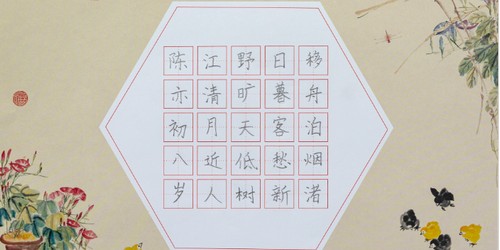 移舟泊烟渚
日暮客愁新
野旷天低树
江清月近人
陈亦初八岁